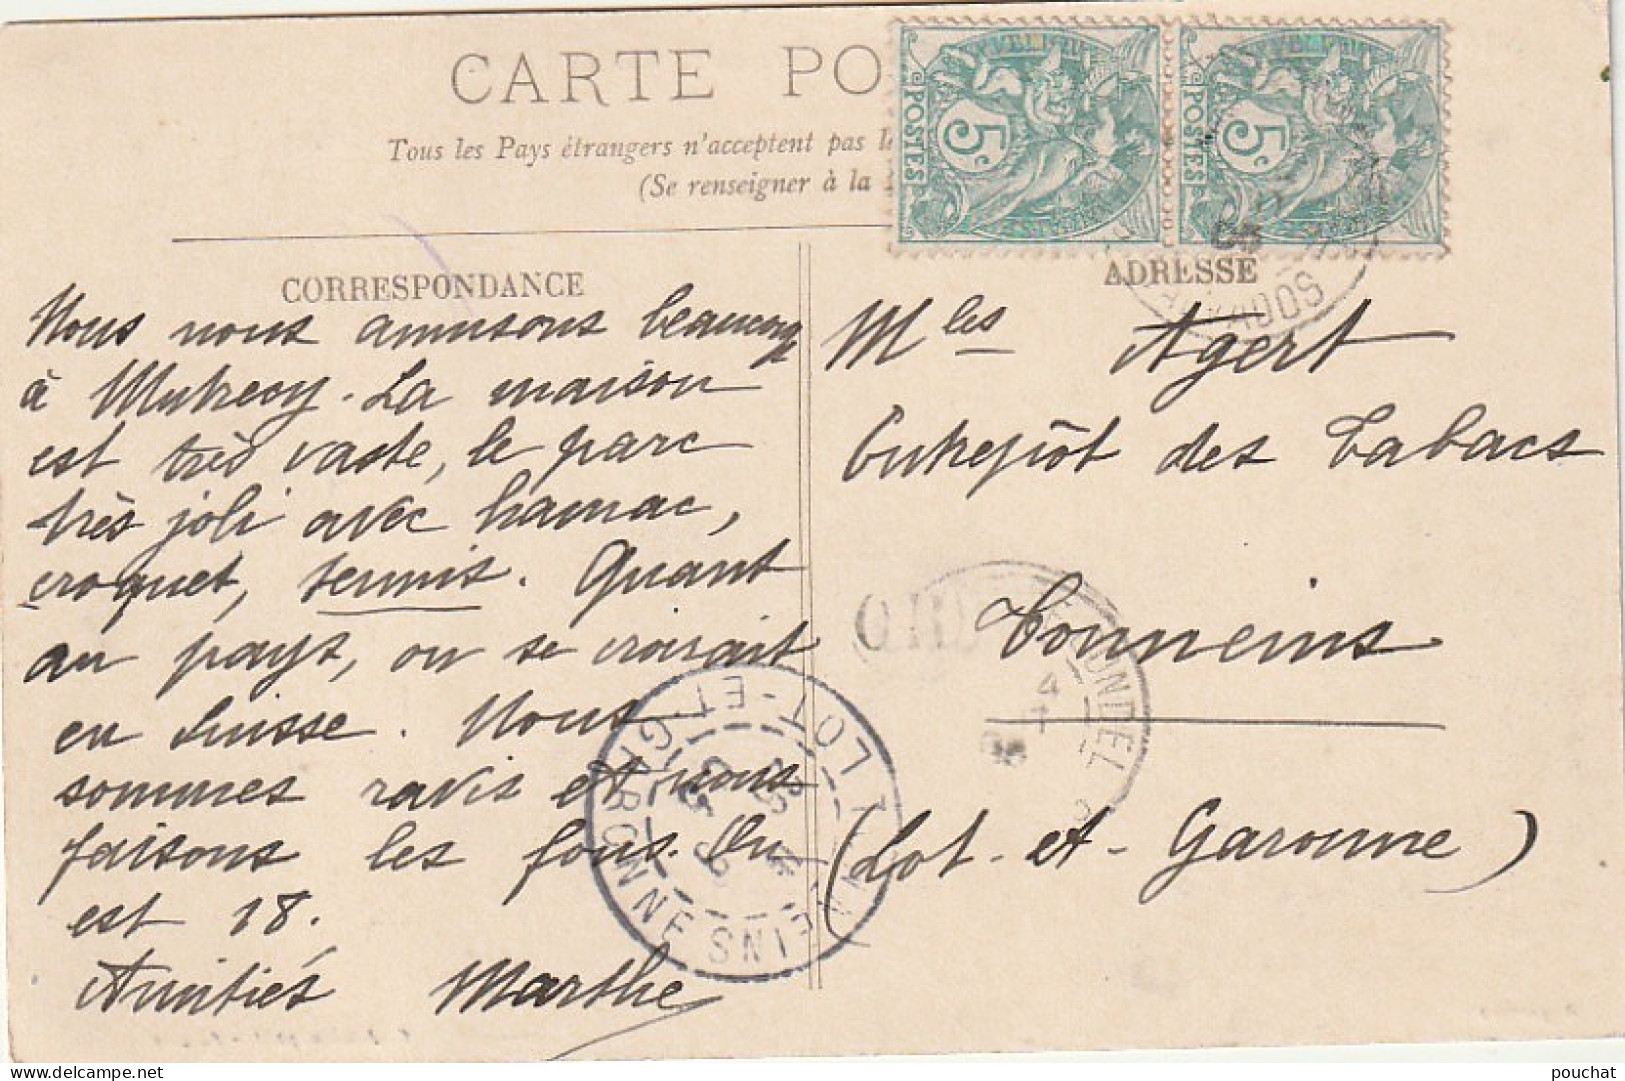 CARTE PO
Tous les Pays étrangers n'acceptent pas l
(Se renseigner à la
POSTES 5c
POSTES 5c
CORRESPONDANCE
ADRESSE
Nous nous amusons beaucoup
à Mutrecy. La maison
est très vaste, le parc
très joli avec hamac,
croquet, tennis. Quant
au pays, on se croirait
en Suisse. Nous
sommes ravis et nous
faisons les fous. On
est 18.
Amitiés Marthe
Mles Agert
Entrepôt des Tabacs
Tonneins
(Lot-et-Garonne)
CALVADOS
LOT-ET-GARONNE
pouchat